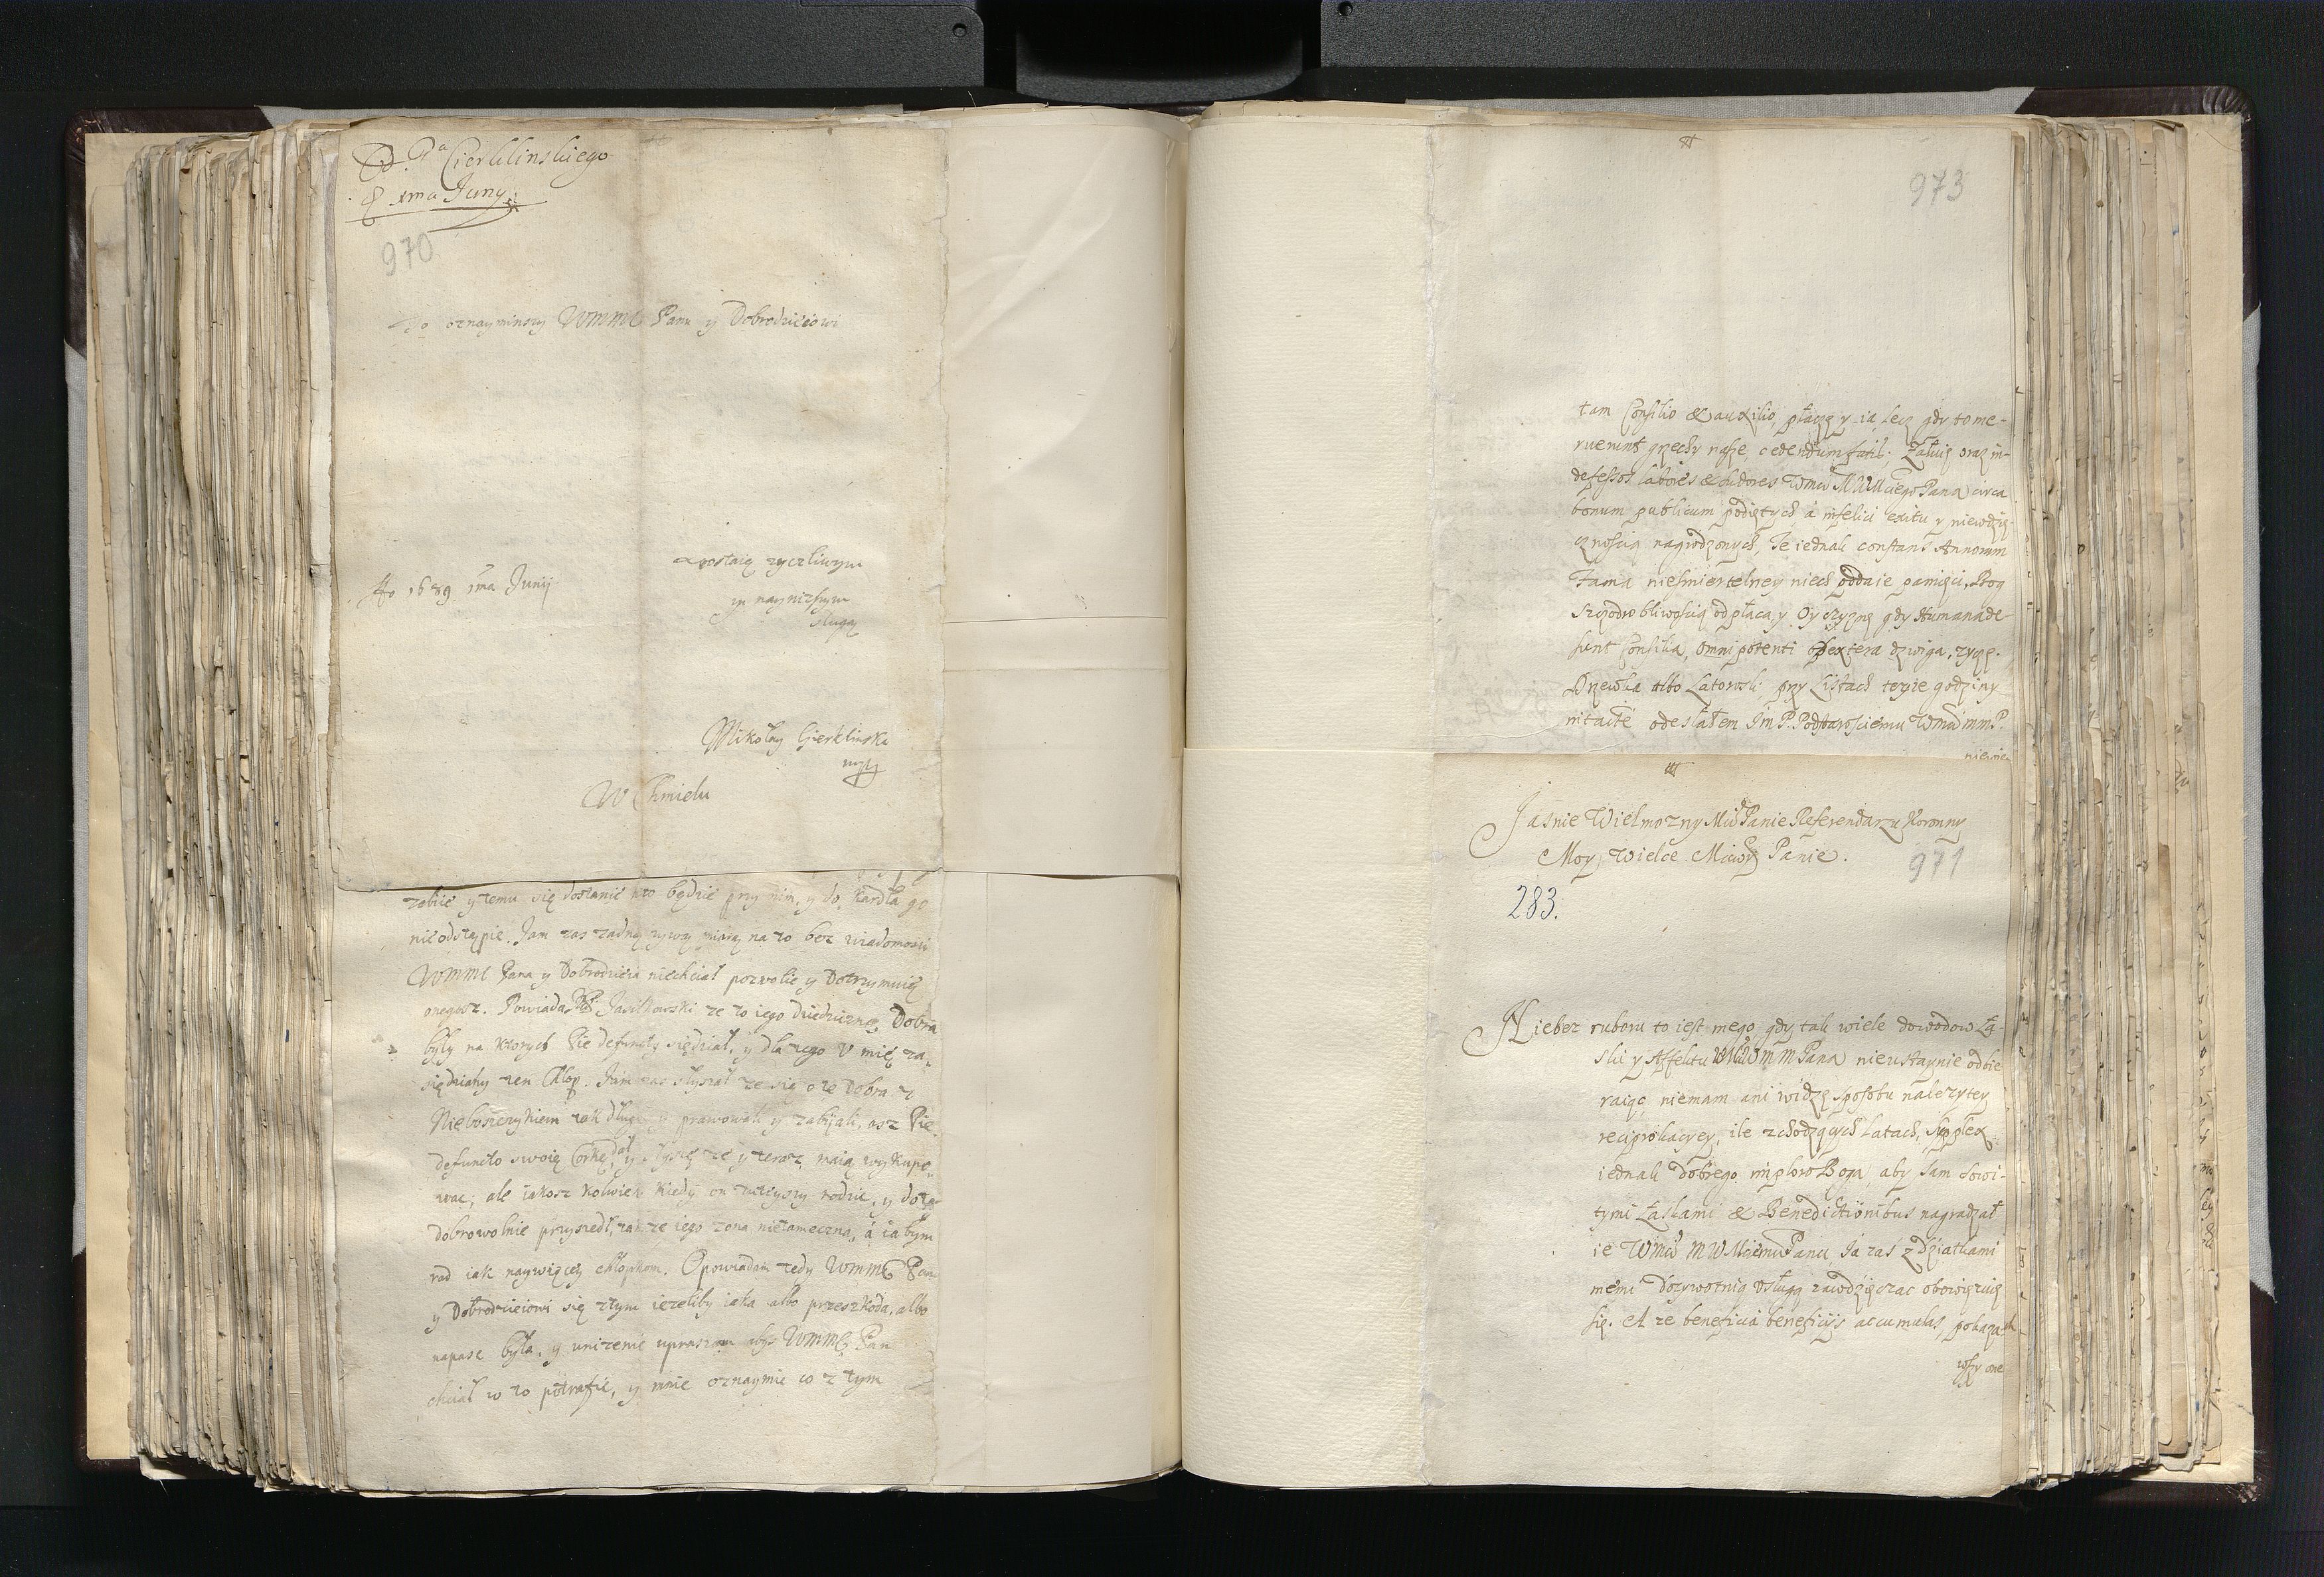 Od Pa Cierklinskiego
8 1ma Juny
970
do oznayminszy WMMC Panu y Dobrodzieiowi
zostaię zyczliwym
Ao 1689 1ma Junij
y naynizszym
sługą
Mikołay Cierklinski
mp
W Chmielu
zebiie y temu się dostanie kto będzie przy nim, y do kardła go
nie odstąpie. Jam zas zadną zywą miarą na to bez wiadomosci
WMMC Pana y Dobrodzieia niechciał pozwolic y Dotrzymuię
onegosz. Powiada JP. Jasilkowski ze to iego dziedziczne Dobra
były na ktorych Pie defuncty siędział, y dla tego v mię za-
siędziały ten Chłop. Jam zas słyszał ze się o te dobra z
Nieboszczykiem tak długo prawowali y zabijali, asz Pie
defuncto swoię Corkę dał, y słyszę ze y teraz maią wykupo-
wac, ale iakosz kolwiek kiedy on tuteyszy rodzic, y do tego
dobrowolnie przyszedł, takze iego zona nietameczna, á ia bym
rad iak naywięcey chłopkom. Opowiadam tedy WMMC Panu
y Dobrodzieiowi się z tym iezeliby iaka albo przeszkoda, albo
napasc była, y unizenie upraszam abys WMMC Pan
chciał w to potrafic, y mnie oznaymic co z tym
973
tam Consilio & auxilio, płaczę y ia, lecz gdy to me-
ruerunt grzechy nasze, cedendum fatis; Załuię oraz in-
defessos labores & sudores WMci MWMciego Pana circa
bonum publicum podiętych, á infelici exitu y niewdzię-
cznoscią nagrodzonych, Te iednak constans Annorum
Fama niesmiertelney niech oddaie pamięci, Bog
szczodrobliwoscią odpłaca, y Oyczyznę gdy Humana de-
sunt Consilia, Omnipotenti Dextera dzwiga, zyczę.
Drzewka albo Latoroski przy Listach teyze godziny
odesłałem Jm P. Podstarosciemu WMci mm P.
niewie
Jasnie Wielmozny Mci Panie Referendarzu Koronny
Moy Wielce Mciwy Panie.
971
283.
Niebez ruboru to iest mego, gdy tak wiele dowodow Ła-
ski y Affektu WMci M M Pana nieustaynie odbie
raiąc niemam ani widzę sposobu nalezytey
reciprokacyey, ile zchodzących latach, supplex
iednak dobrego imploro Boga, aby sam sowi-
tymi Łaskami & Benedictionibus nagradzał
ie WMci MWMciemu Panu, Ja zas z dziatkami
memi dozywotnią usługą zawdzięczac obowięzuię
się. A ze beneficia beneficijs accumulas, pokaza
wszy one